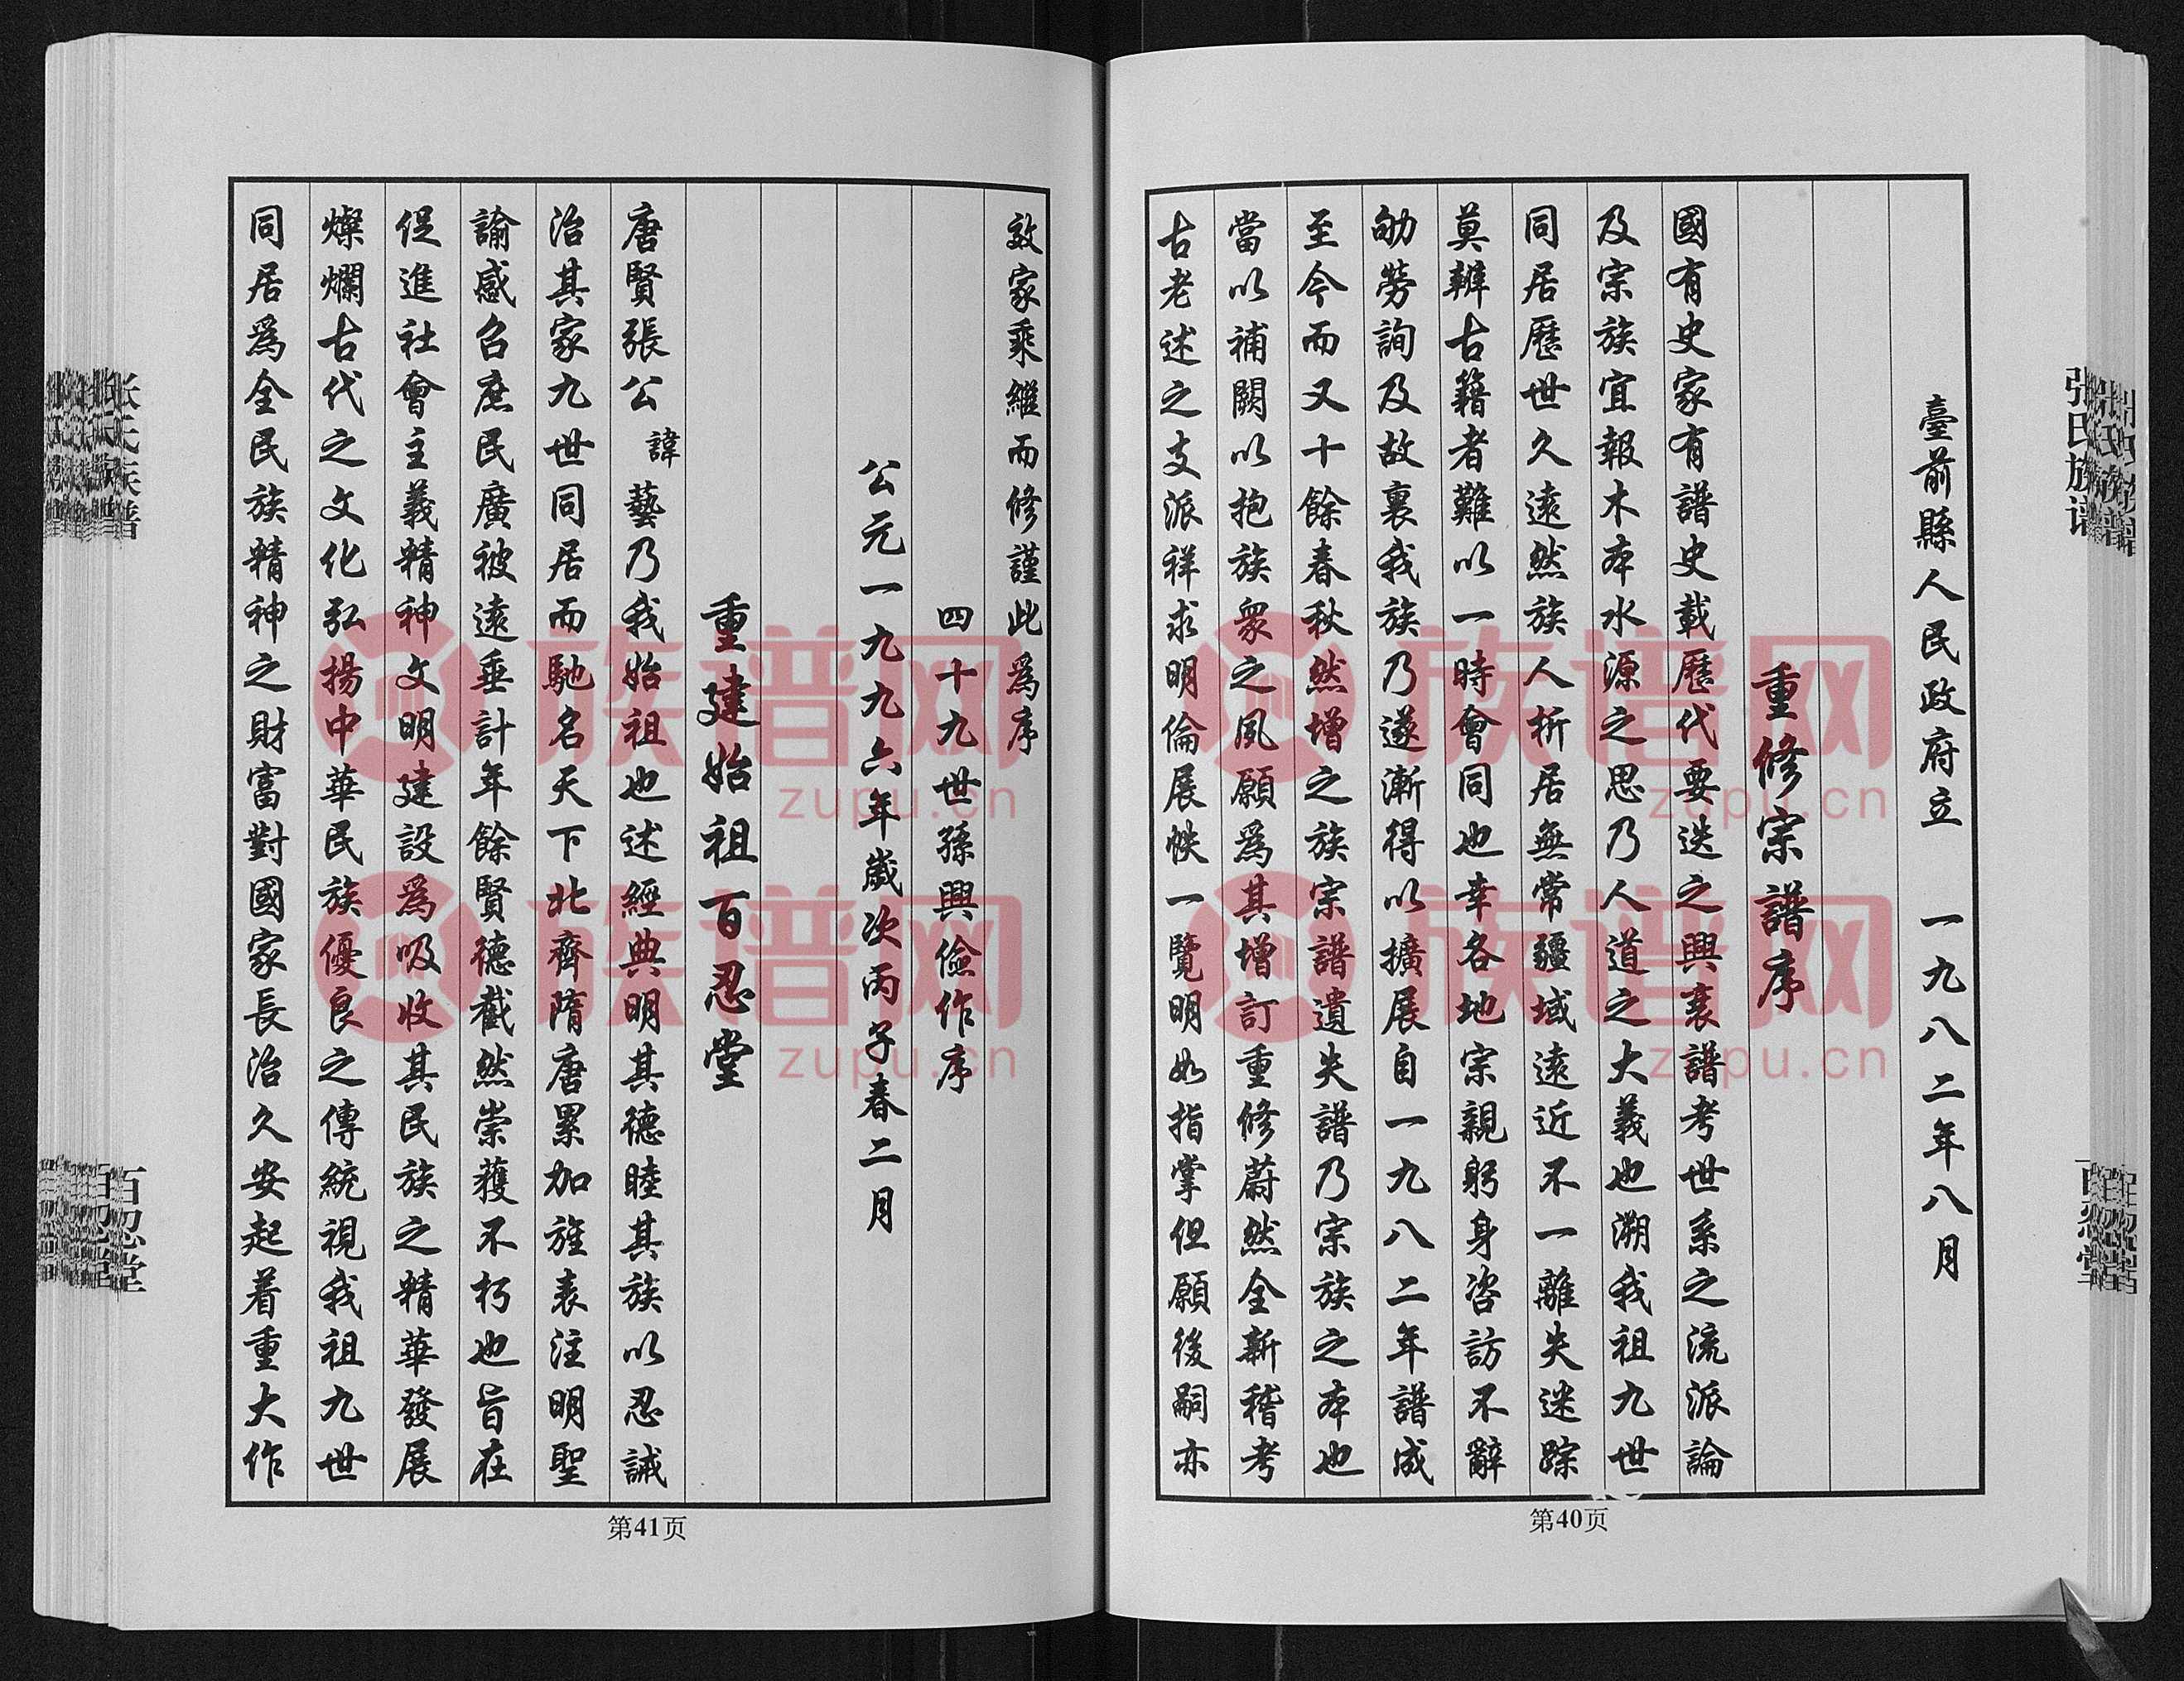 臺前縣人民政府立 一九八二年八月
重修宗譜序
國有史家有譜史載歷代要迭之興衰譜考世系之流派論
及宗族宜報木本水源之思乃人道之大義也溯我祖九世
同居歷世久遠然族人析居無常疆域遠近不一離失迷踪
莫辨古籍者難以一時會同也幸各地宗親躬身咨訪不辭
劬勞詢及故裏我族乃遂漸得以擴展自一九八二年譜成
至今而又十餘春秋然增之族宗譜遺失譜乃宗族之本也
當以補闕以抱族衆之夙願爲其增訂重修蔚然全新稽考
古老述之支派祥求明倫展帙一覽明如指掌但願後嗣亦
第40页
效家乘繼而修謹此爲序
四十九世孫興儉作序
公元一九九六年歲次丙子春二月
重建始祖百忍堂
唐賢張公諱藝乃我始祖也述經典明其德睦其族以忍誡
治其家九世同居而馳名天下北齊隋唐累加旌表注明聖
諭感召庶民廣被遠垂計年餘賢德截然崇獲不朽也旨在
促進社會主義精神文明建設爲吸收其民族之精華發展
燦爛古代之文化弘揚中華民族優良之傳統視我祖九世
同居爲全民族精神之財富對國家長治久安起着重大作
第41页
张氏族谱
百忍堂
族谱网
zupu.cn
族谱网
zupu.cn
族谱网
zupu.cn
族谱网
zupu.cn